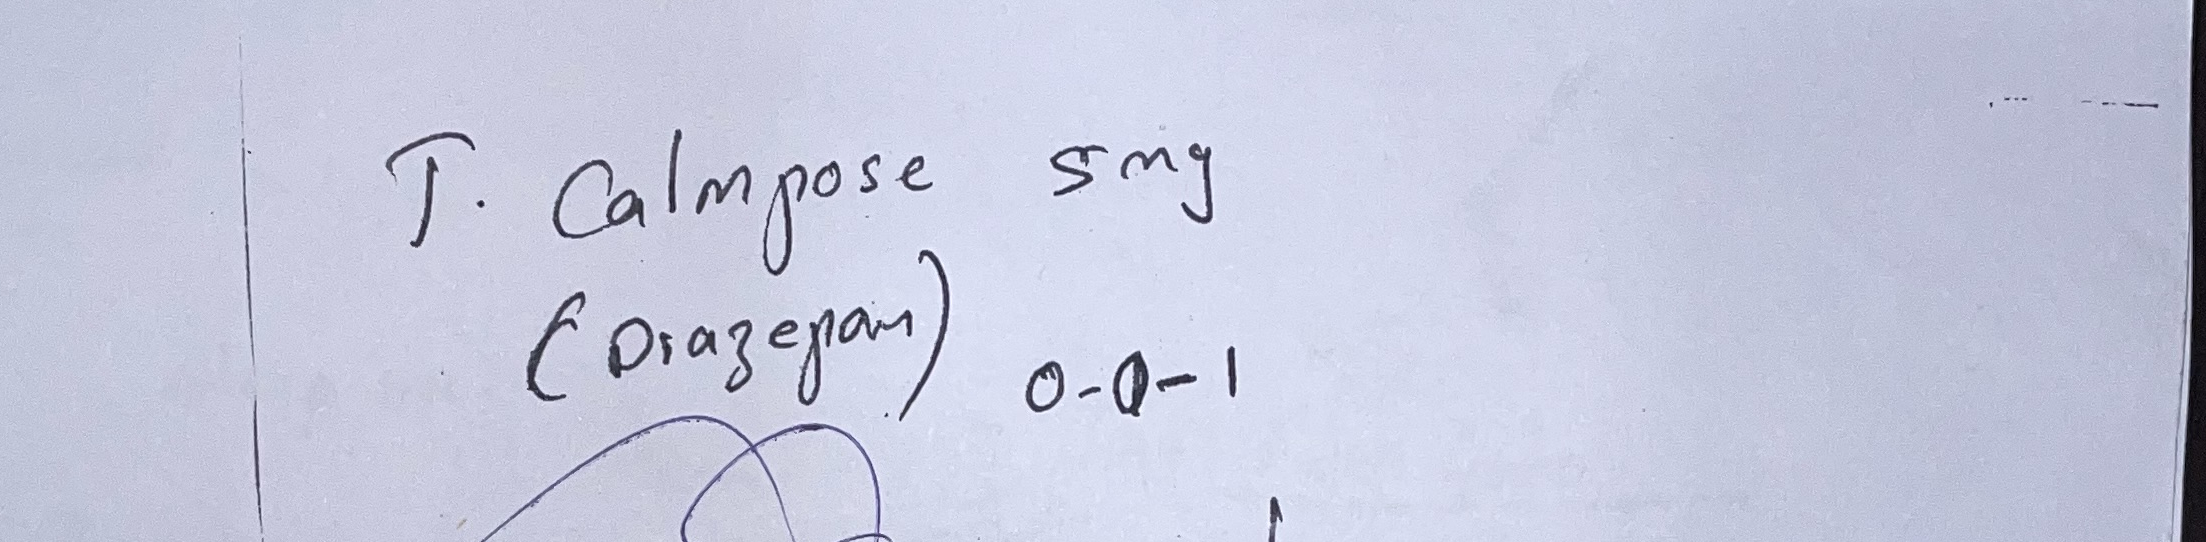 T. Calmpose 5mg
(Diazepam)
0-0-1